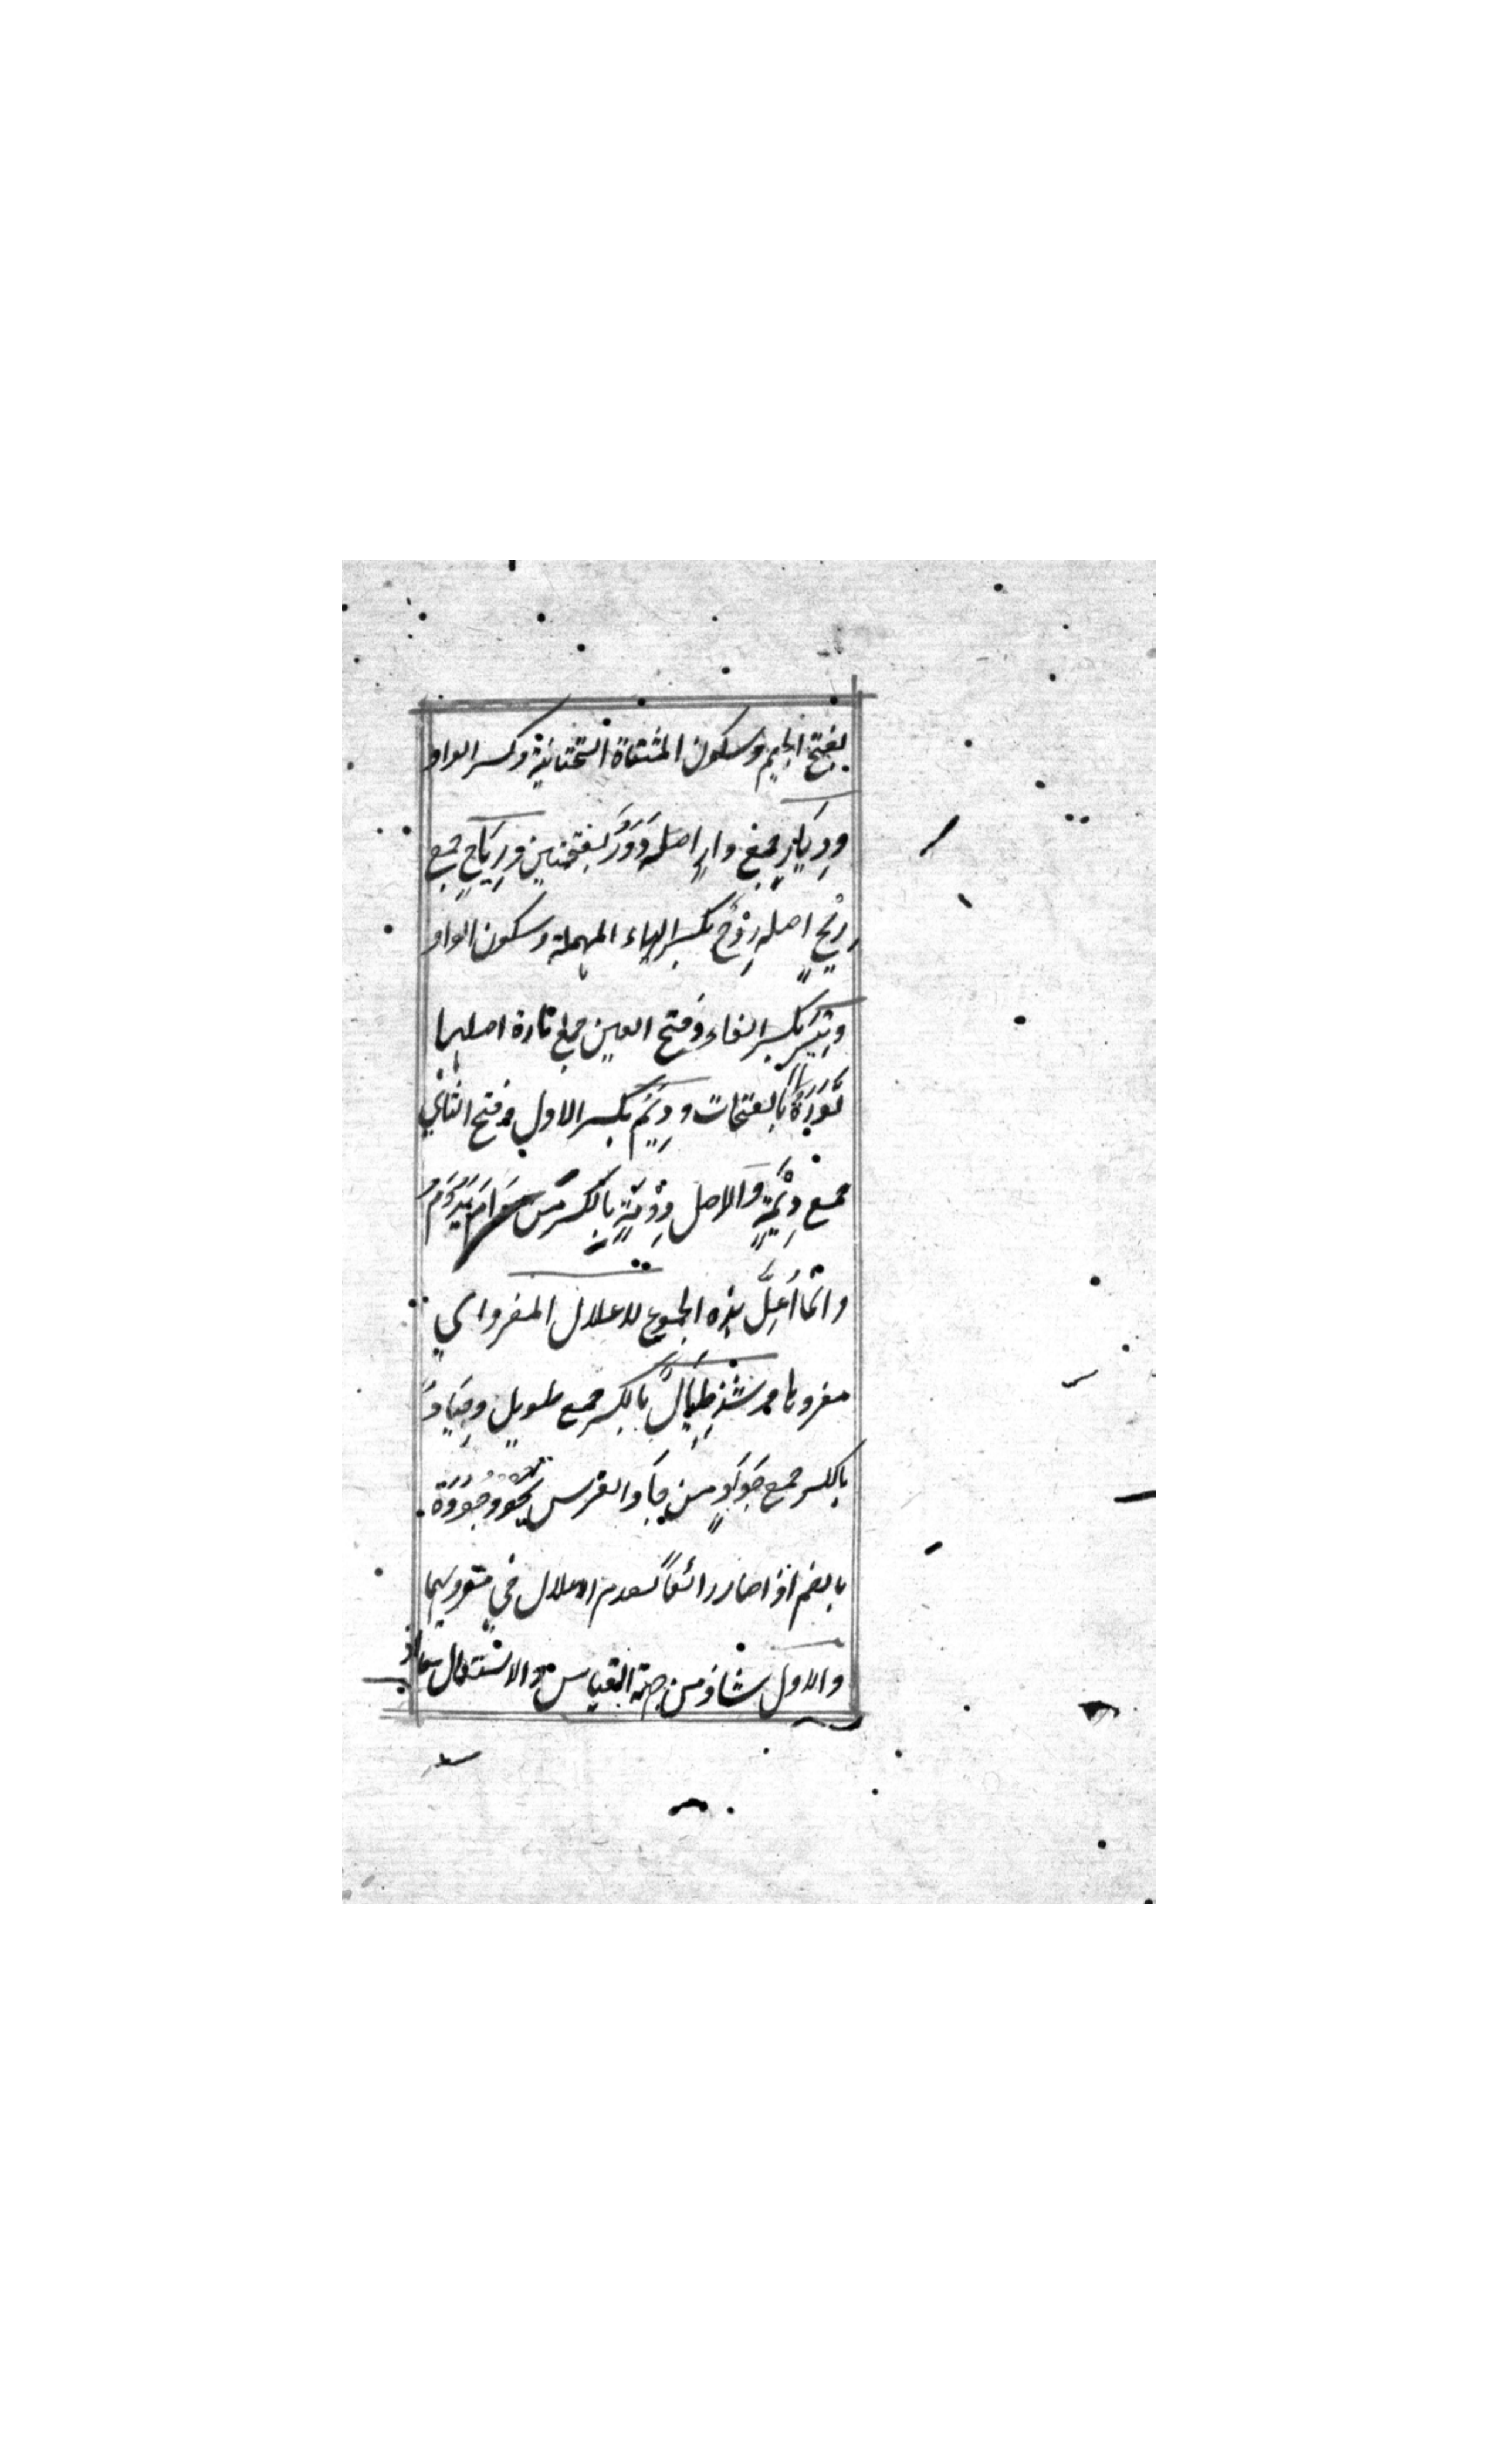 بفتح الجيم وسكون المثناة التحتانية وكسر الواو
ودِيَارٍ جمع دارٍ اصله دَوَرٌ بفتحتين ورِيَاحٍ جمع
رِيْحٍ اصله رِوْحٌ بكسر الراء المهملة وسكون الواو
وتِيَرٍ بكسر الفاء وفتح العين جمع تارة اصلها
تَوَرَةٌ بالفتحات ودِيَمٍ بكسر الاول وفتح الثاني
جمع دِيْمَةٍ والاصل دِوْمَةٍ بالكسر من دَامَ يَدُوْمُ
وانما أُعِلَّ هذه الجموع لاعلال المفرد اي
مفردها وشذ طِيَالٌ بالكسر جمع طويلٍ وجِيَادٌ
بالكسر جمع جَوَادٍ من جَادَ الفرس يجود جُوْدَةً
بالضم اذا صار رائعًا لعدم الاعلال في مفرديهما
والاول شاذ من جهة القياس والاستعمال معا